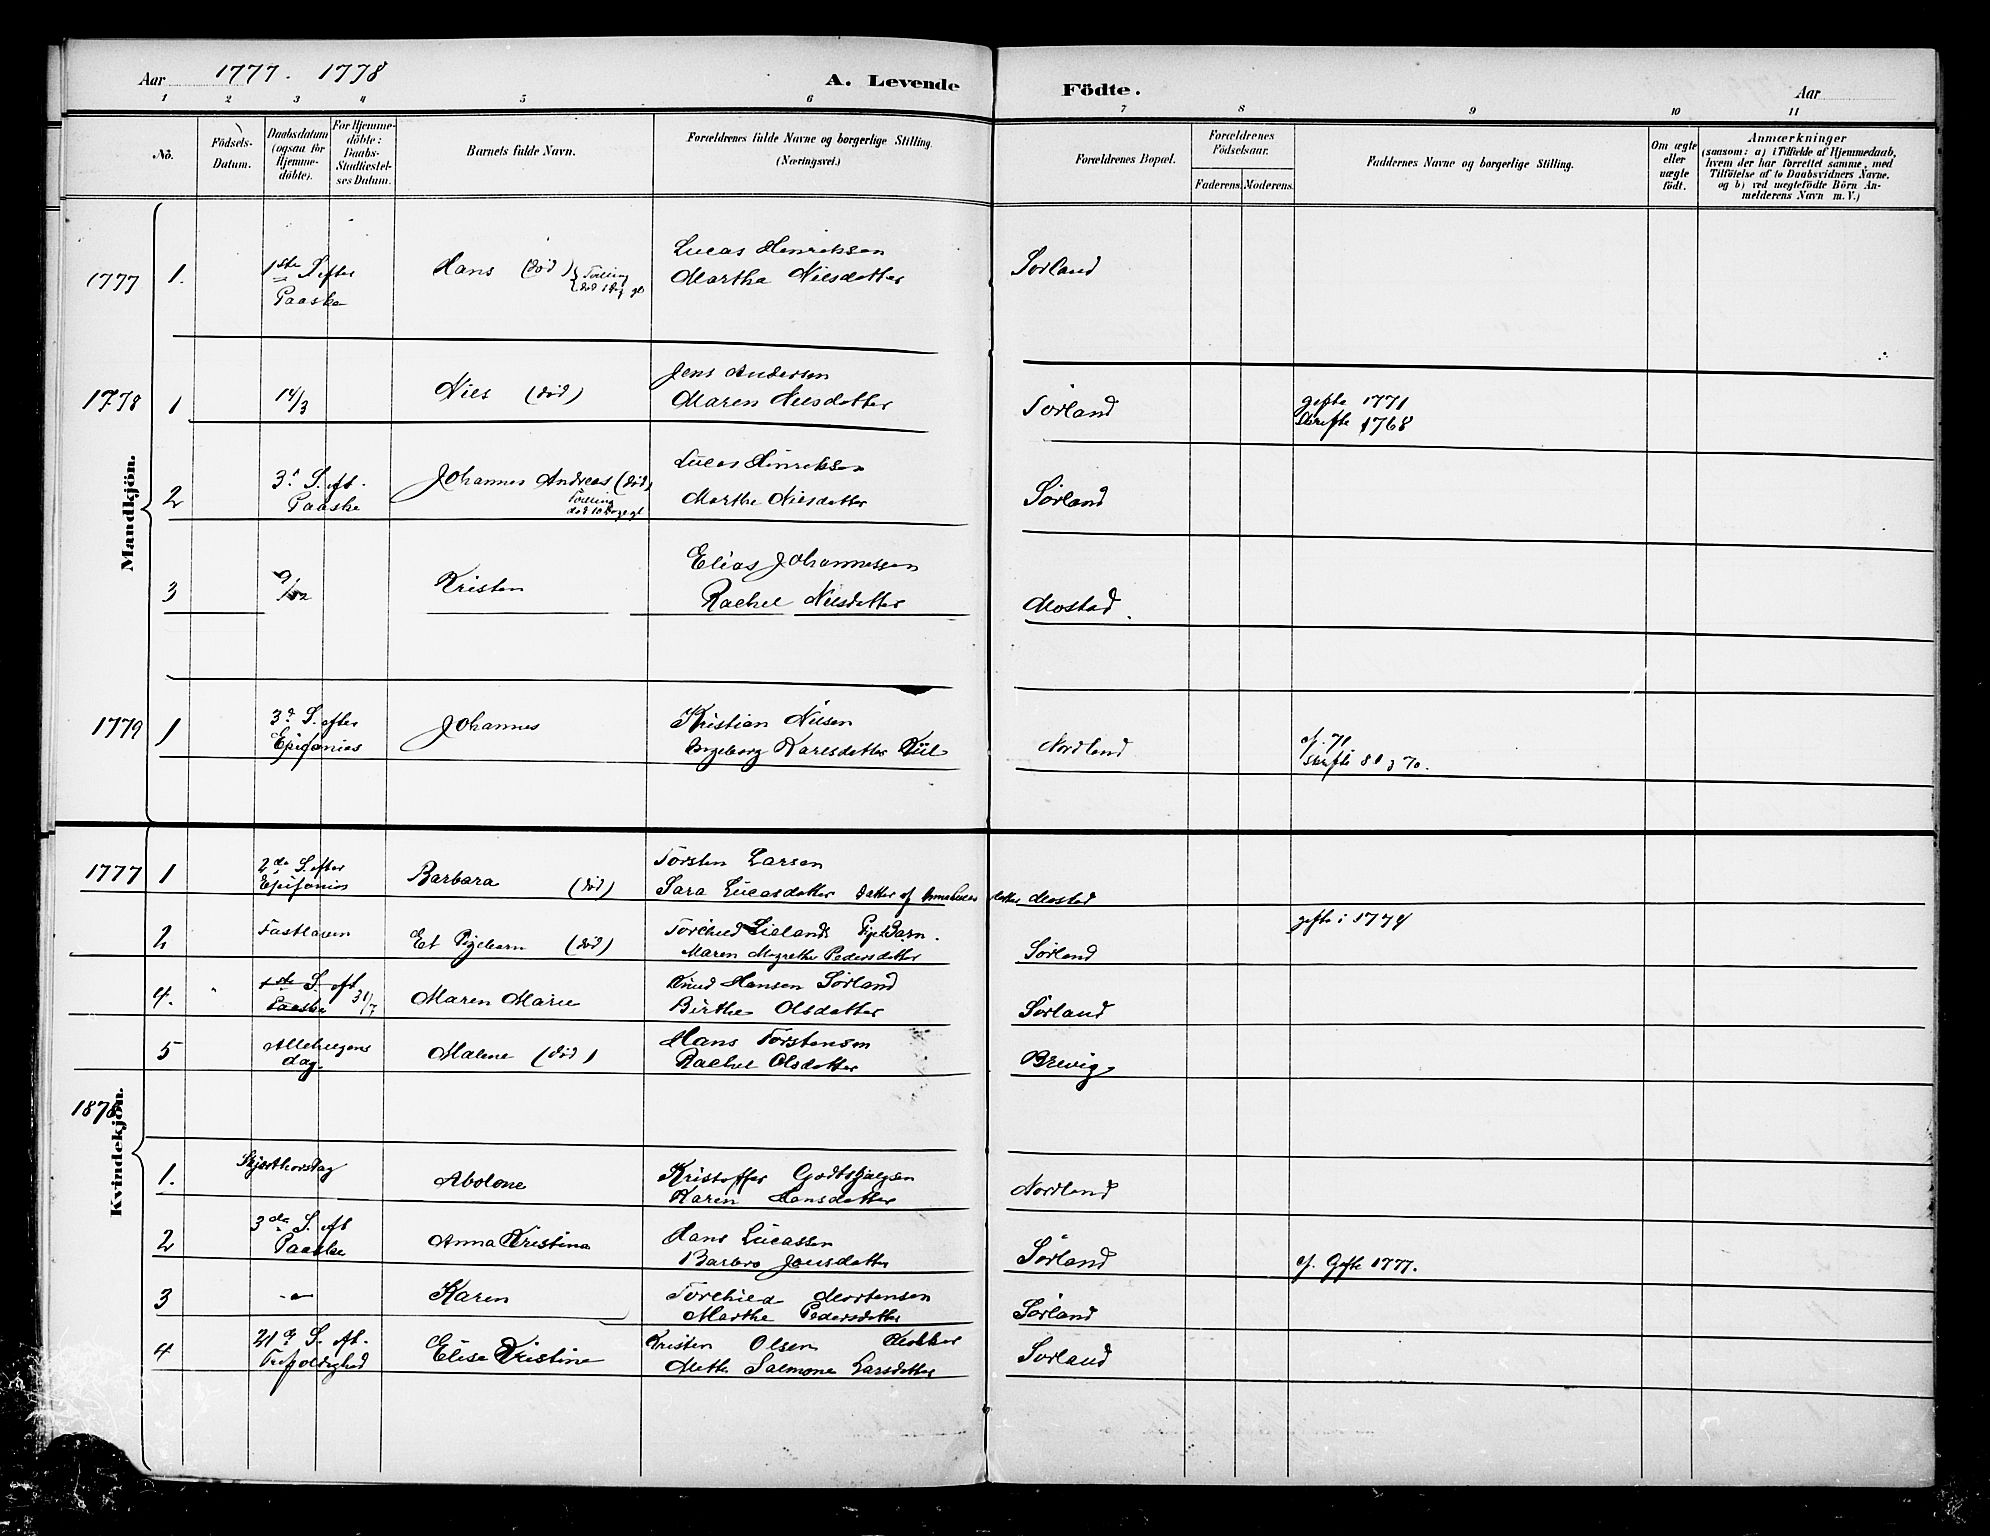 Aar 1777. 1778
A. Levende Födte.
Aar
1 2 3 4 5 6 7 8 9 10 11
No. Födsels-Datum. Daabsdatum (ogsaa for Hjemmedöbte). For Hjemmedöbte: Daabs-Stadfæstelses Datum. Barnets fulde Navn. Forældrenes fulde Navne og borgerlige Stilling. (Næringsvei.) Forældrenes Bopæl. Forældrenes Födselsaar. Faderens. Moderens. Faddernes Navne og borgerlige Stilling. Om ægte eller uægte födt. Anmærkninger (saasom: a) i Tilfælde af Hjemmedaab, hvem der har forrettet samme, med Tilföielse af to Daabsvidners Navne. og b) ved uægtefödte Börn Anmelderens Navn m. V.)
Mandkjön.
1777 1. 1ste S. efter Paaske Hans (död) Tvilling död 1 Dag gl Lucas Henriksen
Martha Nilsdatter Sorland
1778 1 14/3 Niels (död) Jens Andersen
Maren Nilsdatter Sörland gifte 1771
Skrifte 1768
2 3d S. eft. Paaske Johannes Andreas (död) Tvilling död 10 Dage gl Lucas Hinriksen
Marthe Nilsdatter Sörland
3 Kristen Elias Johannessen
Rachel Nilsdatter Mostad.
1779 1 3d S. efter Epifanias Johannes Kristian Nilsen
Ingeborg Karlsdatter Kiil Nordland cf. 71
Skrifte 80 3/70.
Kvindekjön.
1777 1 2de S. efter Epifanios Barbara (död) Torsten Larsen
Sara Lucasdatter Datter af Anne Lucasdatter Mostad
2 Fastlaven Et Pigebarn (död)
Maren Magrethe Pedersdatter Sörland gifte i 1774
4. 1ste S. eft Paaske 31/7 Maren Marie Knud Hansen Sörland
Birthe Olsdatter Sörland
5 Allehelgens dag. Malene (död) Hans Torstensen
Rachel Olsdatter Brevig
1878
1. Skjærthorsdag Abolone Kristoffer Godtskalgsen
Karen Hansdatter Nordland
2 3de S. eft Paaske Anna Kristina Hans Lucassen
Barbro Jensdatter Sörland cf. Gifte 1777.
3 -"- Karen Torchild Mortensen
Marthe Pedersdatter Sörland
4 21d S. eft. Trefoldighed Elise Kristine Kristen Olsen Klokker
Mette Salmone Larsdatter Sorland